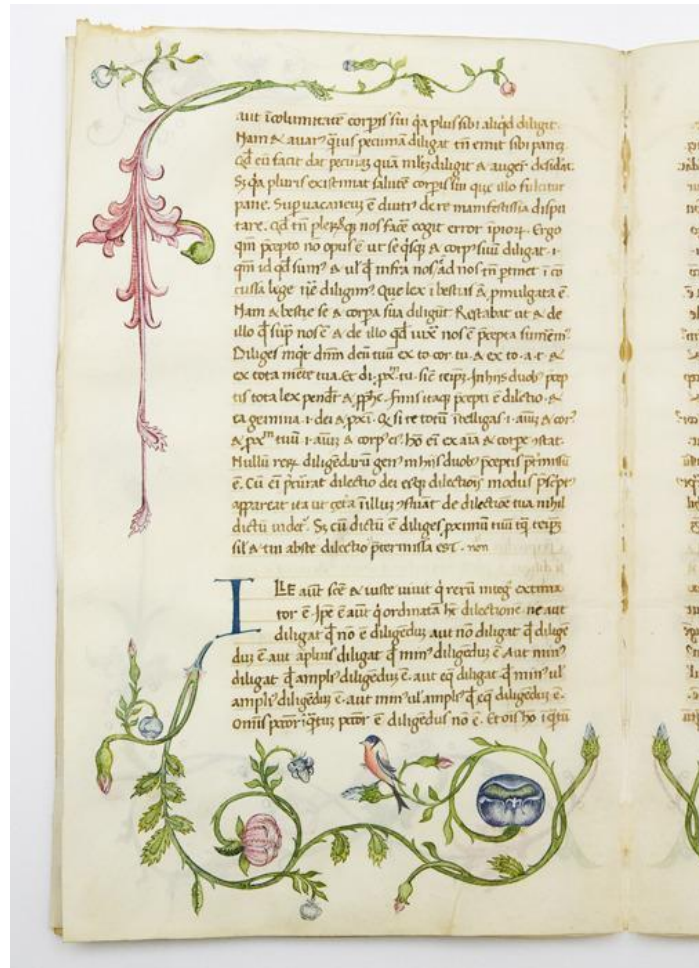 aut icolumitatē corpis sui qa plus sibi aliqd diligit.
Nam & auar⁹ qͥuis pecuniā diligat tn̄ emit sibi panē
Qd cū facit dat pecuniā quā diligit & auger̄ desidat.
Sꝫ qa pluris existimat salutē corpis sui que illo fulcitur
pane. Supuacaneuꝫ ē diuti⁹ de re manifestissia dispu
tare. Qd tn̄ nos facē cogit error ipioꝝ. Ergo
qm̄ pcepto no opus ē ut se & corp⁹ suuꝫ diligat. i.
qm̄ id qd sum⁹ & infra nos ad nos tn̄ ptinet i cō
cussa lege diligim⁹. Que lex i bestias & pmulgata ē.
Nam & bestie se & corpa sua diligūt Restabat ut & de
illo sup nos ē & de illo qd iuxͣ nos ē pcepta sumem⁹
Diliges dnm̄ deū tuū ex to. cor. tu. & ex to. a. t. &
ex tota mēte tua. Et di. pxͫ. tu. sic̄ teipꝫ. In hijs duob⁹ pcep
tis tota lex pendet & pphe. Finis itaqꝫ pcepti ē dilectio. &
ea gemina. i. dei & pxi. Qꝫ si te totū itelligas. i. aiūꝫ & cor⁹
& pxͫ tuū. i. aiūꝫ & corp⁹ ei⁹. hō ei ex aia & corpe ɔstat.
Nullū rerꝫ diligēdarū gen⁹ in hijs duob⁹ pceptis ptmissū
ē. Cū ei pcurrat dilectio dei eiusqꝫ dilectiōis modus pscpt⁹
appareat ita ut cetā illuꝫ ɔfluāt de dilectiōe tua nihil
dictū videt⁹. Sꝫ cū dictū ē diliges pximū tuū tqꝫ teipꝫ
sil & tui abste dilectio ptermissa est. non
ILLE aut̄ scē & iuste vivit qͥ rerū integ⁹ extima
tor ē. Ipe ē aut̄ qͥ ordinatā ht̄ dilectione. ne aut
diligat qd nō ē diligēduꝫ aut nō diligat qd dilige
duꝫ ē aut aplius diligat qd min⁹ diligēduꝫ ē. Aut min⁹
diligat qd ampli⁹ diligēduꝫ ē. aut eq diligat qd min⁹ ul
ampli⁹ diligēduꝫ ē. aut min⁹ ul ampli⁹ qd eq diligēduꝫ ē.
Omīs pctor iqͣtuꝫ pctor ē diligēdus nō ē. Et oīs ho iqͣtū